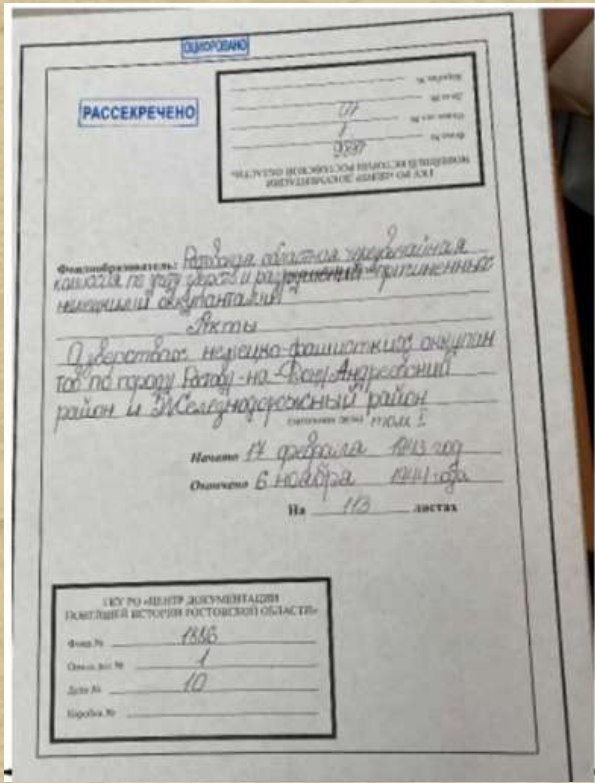 ОЦИФРОВАНО
РАССЕКРЕЧЕНО
ГКУ РО «ЦЕНТР ДОКУМЕНТАЦИИ
НОВЕЙШЕЙ ИСТОРИИ РОСТОВСКОЙ ОБЛАСТИ»
Фонд №
Опись дел № 1
Дело № 10
Коробка №
Фондообразователь: Ростовская областная чрезвычайная
комиссия по учету зверств и разрушений причиненных
немецкими оккупантами
Акты
О зверствах немецко-фашистких оккупан
тов по городу Ростову-на-Дону Андреевский
район и Железнодорожный район
том I
Начато 17 февраля 1943 год
Окончено 6 ноября 1944 года
На 113 листах
ГКУ РО «ЦЕНТР ДОКУМЕНТАЦИИ
НОВЕЙШЕЙ ИСТОРИИ РОСТОВСКОЙ ОБЛАСТИ»
Фонд № 1886
Опись дел № 1
Дело № 10
Коробка №